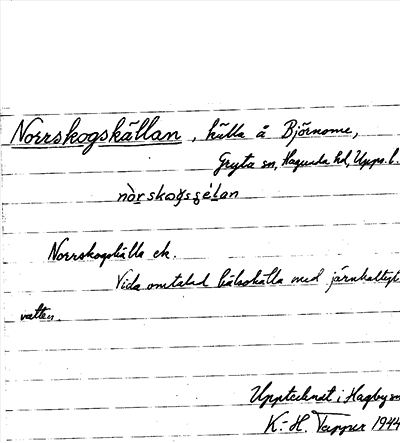 Norrskogskällan, källa å Björnome,
Gryta sn, Hagunda hd, Upps. l.
nòrskogsçèlan
Norrskogskälla ek.
Vida omtalad hälsokälla med järnhaltigt
vatten.
Upptecknat i Hagby sn
K.-H. Tapper 1944